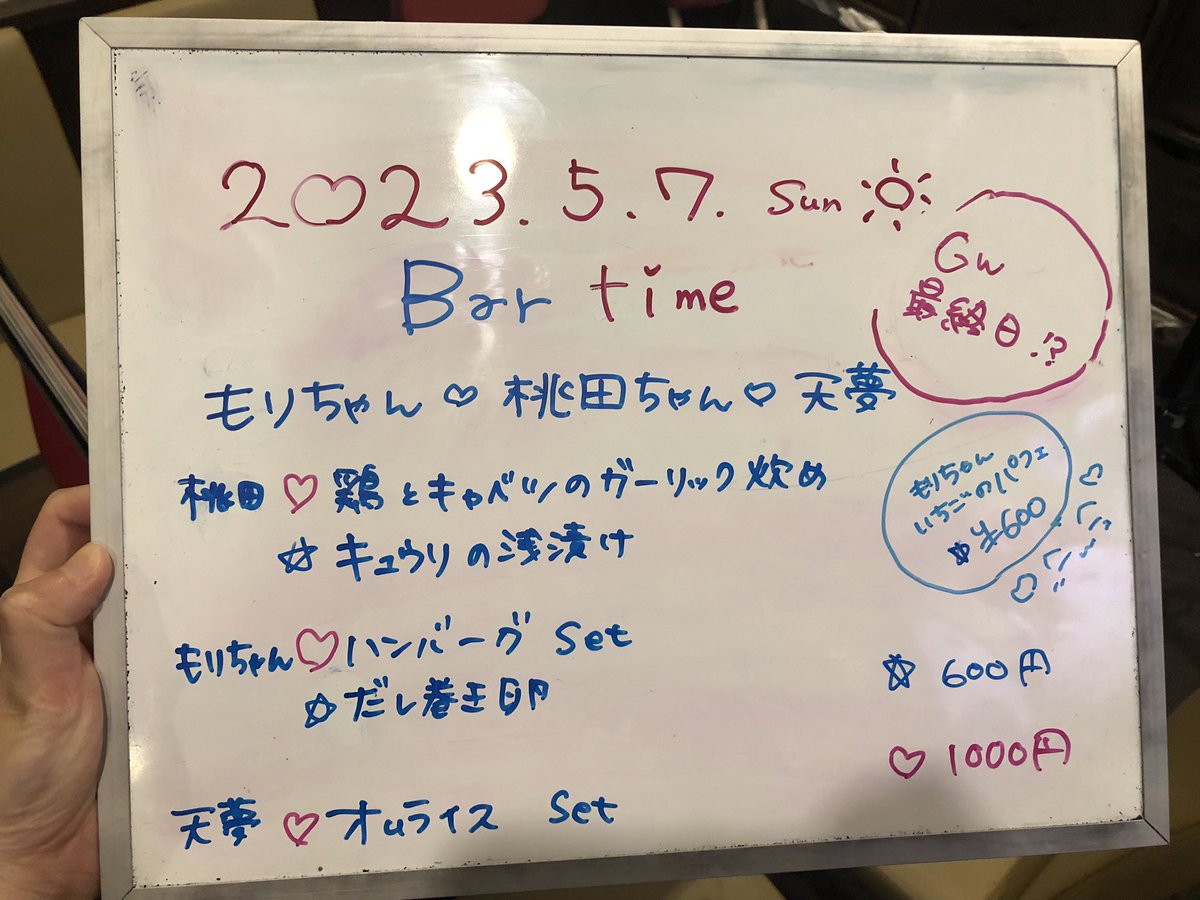 2♡23.5.7. Sun
Bar time
GW
最終日.!?
もりちゃん♡桃田ちゃん♡天夢
桃田♡鶏とキャベツのガーリック炊め
☆キュウリの浅漬け
もりちゃん
いちごのパフェ
☆¥600
もりちゃん♡ハンバーグ Set
☆だし巻き卵
☆600円
♡1000円
天夢♡オムライス Set